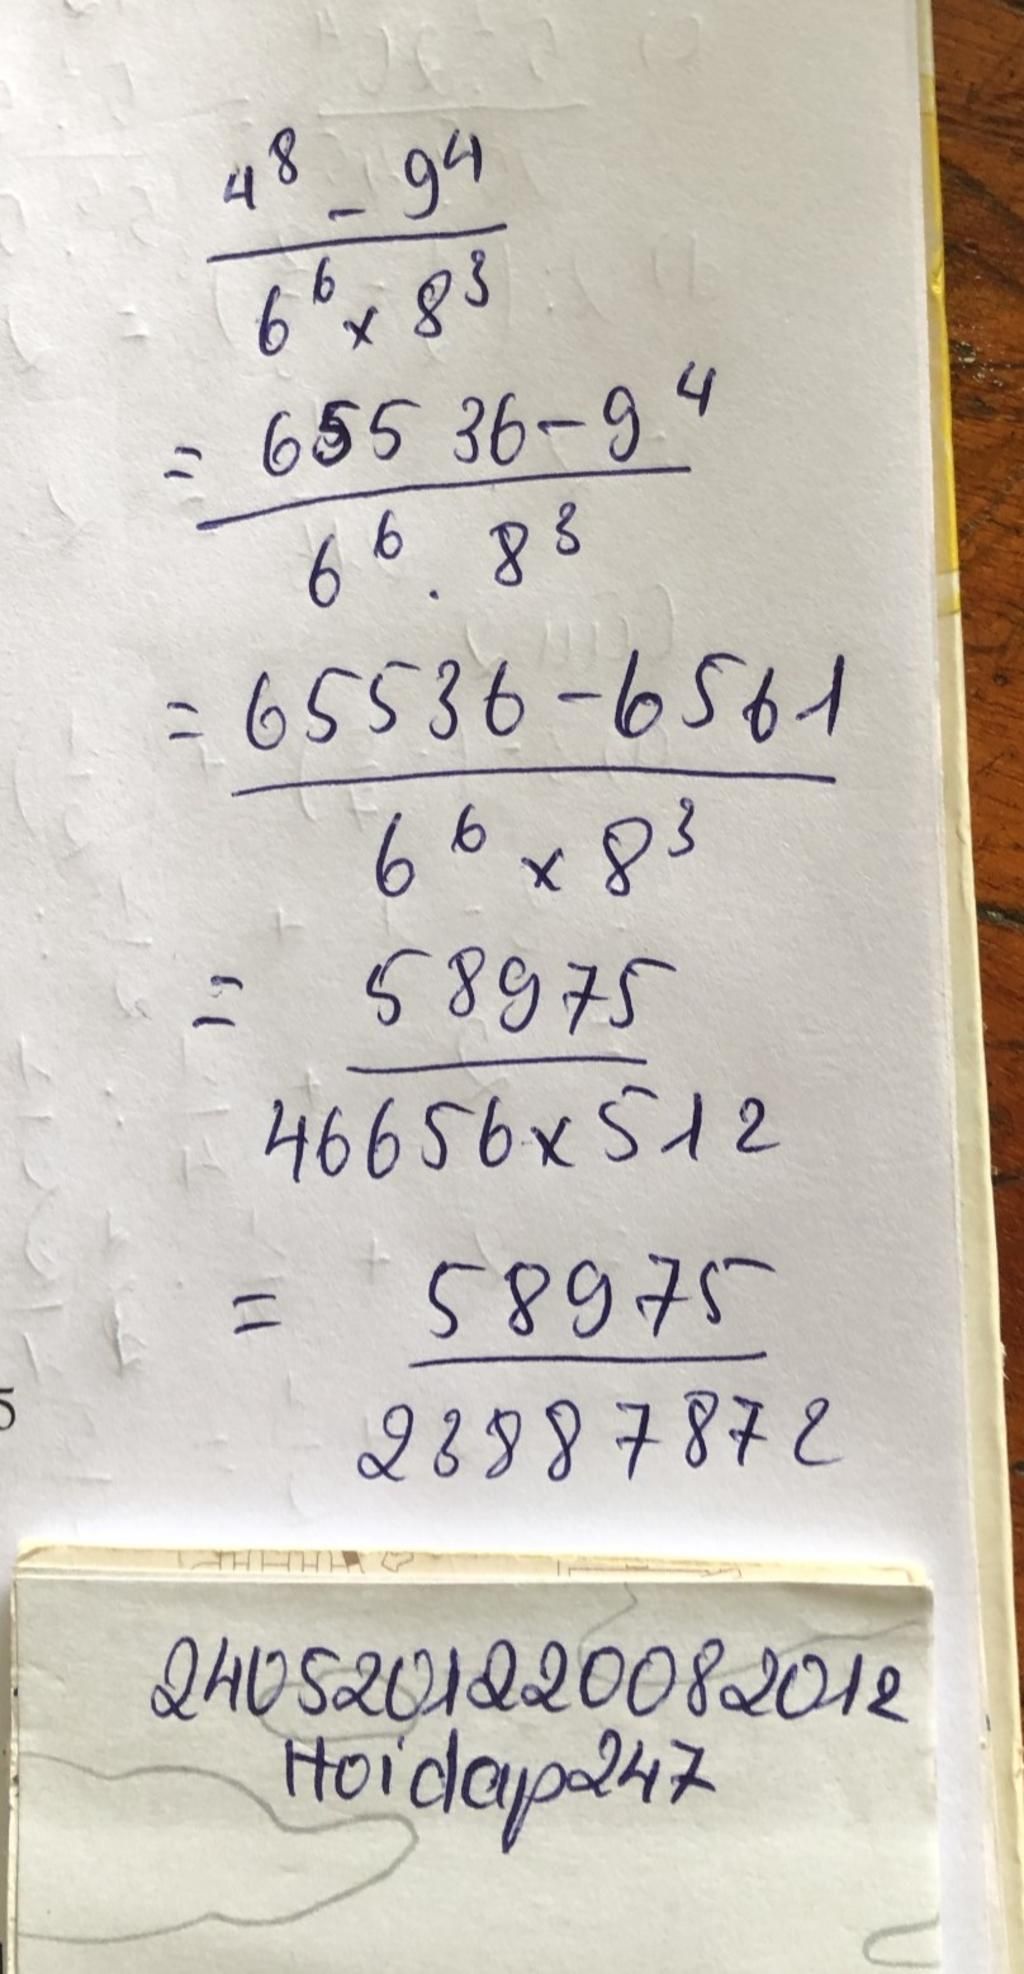 4⁸ - 9⁴
6⁶ x 8³
= 65536 - 9⁴
6⁶ . 8³
= 65536 - 6561
6⁶ x 8³
= 58975
46656 x 512
= 58975
23887872
5
2405201220082012
Hoidap247